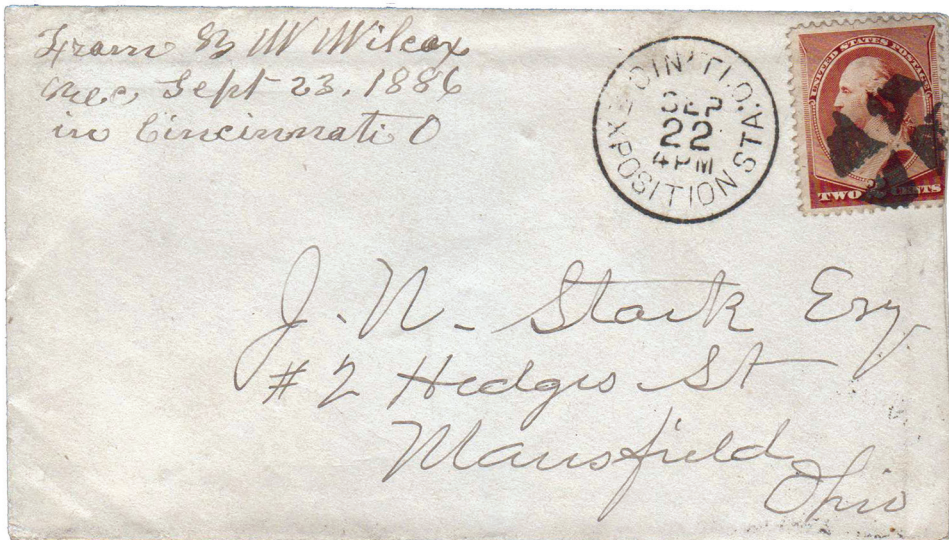 From B W Wilcox
Rec Sept 23, 1886
in Cincinnati O
CIN'TI.O.
EXPOSITION STA.
SEP
22
4PM
UNITED STATES POSTAGE
TWO CENTS
J. N. Stark Esq
#2 Hedges St
Mansfield
Ohio